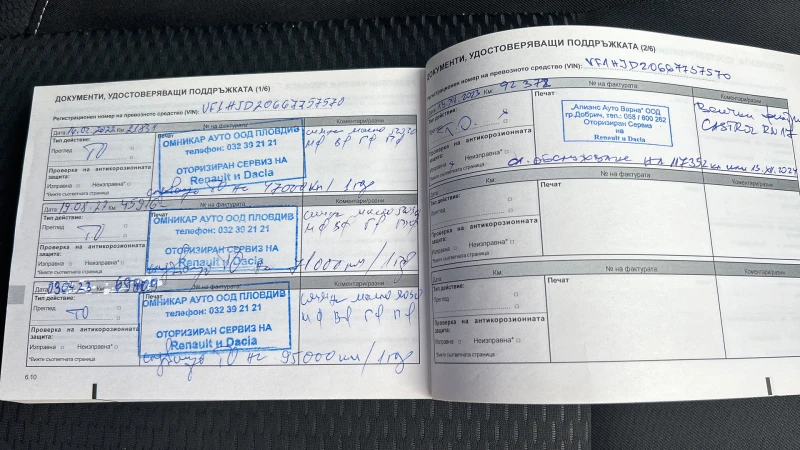 ДОКУМЕНТИ, УДОСТОВЕРЯВАЩИ ПОДДРЪЖКАТА (1/6)
Регистрационен номер на превозното средство (VIN): VF1HJD20667757570
Дата Км № на фактурата Коментари/разни
Тип действие: Печат
Преглед ТО
ОМНИКАР АУТО ООД ПЛОВДИВ
телефони: 032 39 21 21
ОТОРИЗИРАН СЕРВИЗ НА
Renault и Dacia
Проверка на антикорозионната
защита:
Изправна Неизправна*
*Вижте съответната страница
ТО на 47000км / 1 год
Дата 19.08.22 Км 45916 № на фактурата Коментари/разни
Тип действие:
Преглед ТО
ОМНИКАР АУТО ООД ПЛОВДИВ
телефони: 032 39 21 21
ОТОРИЗИРАН СЕРВИЗ НА
Renault и Dacia
Проверка на антикорозионната
защита:
Изправна Неизправна*
*Вижте съответната страница
ТО на 71000км / 1 год
Дата Км № на фактурата Коментари/разни
Тип действие:
Преглед ТО
ОМНИКАР АУТО ООД ПЛОВДИВ
телефони: 032 39 21 21
ОТОРИЗИРАН СЕРВИЗ НА
Renault и Dacia
Проверка на антикорозионната
защита:
Изправна Неизправна*
*Вижте съответната страница
ТО на 95000км / 1 год
6.10
ДОКУМЕНТИ, УДОСТОВЕРЯВАЩИ ПОДДРЪЖКАТА (2/6)
Регистрационен номер на превозното средство (VIN): VF1HJD20667757570
Дата Км 92378 № на фактурата Коментари/разни
Тип действие: Печат
Преглед Т.О.
„Алианс Ауто Варна" ООД
гр.Добрич, тел.: 058 / 600 262
Оторизиран Сервиз
на
Renault и Dacia
Всички
CASTROL RN17
Проверка на антикорозионната
защита:
Изправна Неизправна*
*Вижте съответната страница
сл. обслужване на 117392 км или 13.XII.2024
Дата Км. № на фактурата Коментари/разни
Тип действие: Печат
Преглед
Проверка на антикорозионната
защита:
Изправна Неизправна*
*Вижте съответната страница
Дата Км. № на фактурата Коментари/разни
Тип действие: Печат
Преглед
Проверка на антикорозионната
защита:
Изправна Неизправна*
*Вижте съответната страница